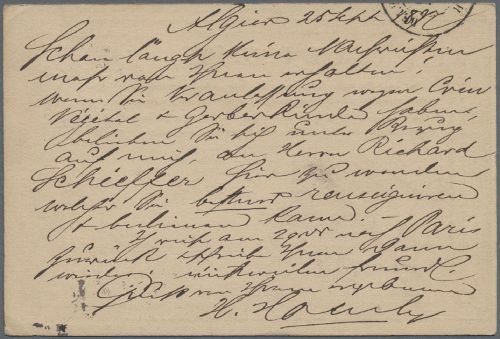 Algier 25 Sept
Schon längst keine Nachrichten
mehr von Ihnen erhalten!
wenn Sie Veranlassung wegen Crin
Végétal & Gerberrinde haben,
belieben Sie sich unter Bezug
auf mich, an Herrn Richard
Scheffter hier zu wenden
welcher Sie bestens renseigniren
& bedienen kann. –
Ich reise am 29ten nach Paris
zurück & schreibe Ihnen dann
wieder, inzwischen freundl.
Gruss von Ihrem ergebenen
H.